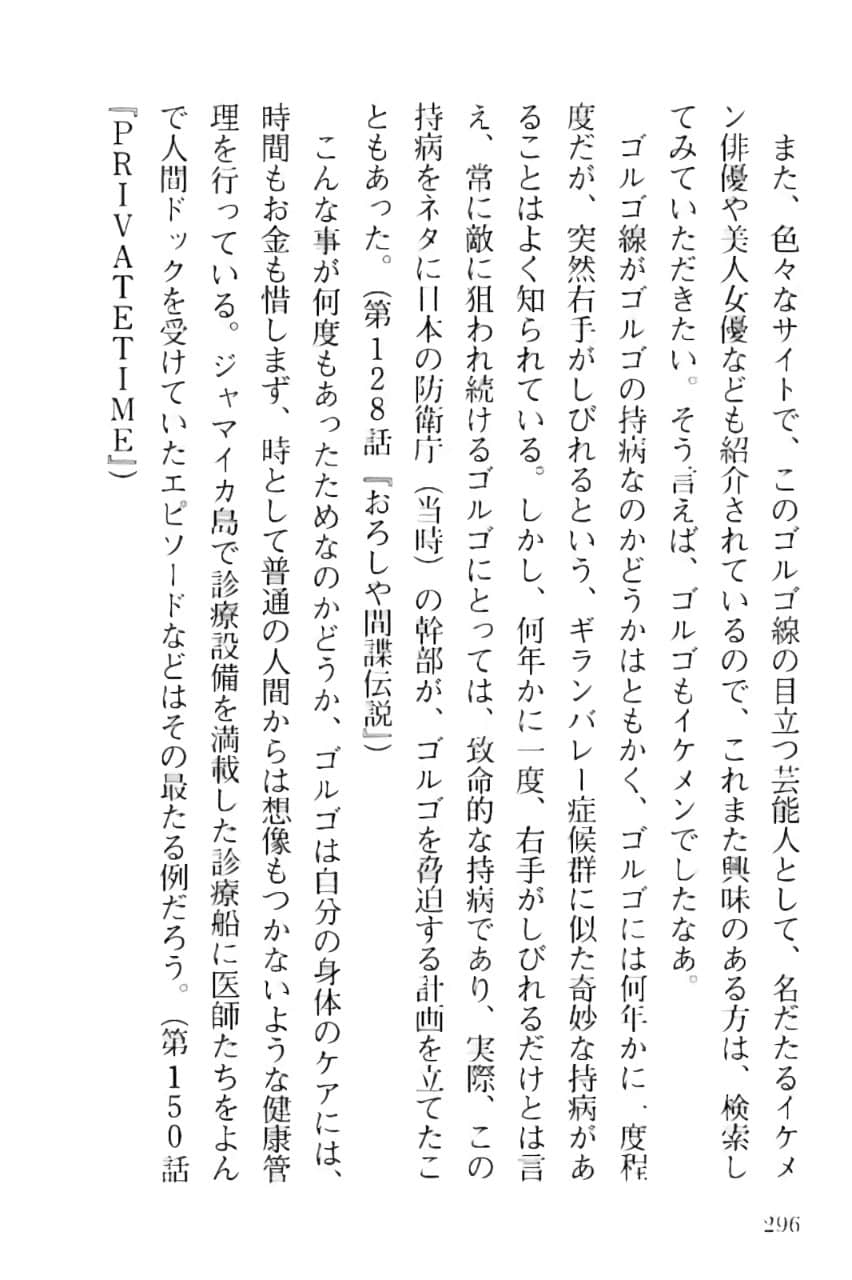 また、色々なサイトで、このゴルゴ線の目立つ芸能人として、名だたるイケメ
ン俳優や美人女優なども紹介されているので、これまた興味のある方は、検索し
てみていただきたい。そう言えば、ゴルゴもイケメンでしたなあ。
ゴルゴ線がゴルゴの持病なのかどうかはともかく、ゴルゴには何年かに一度程
度だが、突然右手がしびれるという、ギランバレー症候群に似た奇妙な持病があ
ることはよく知られている。しかし、何年かに一度、右手がしびれるだけとは言
え、常に敵に狙われ続けるゴルゴにとっては、致命的な持病であり、実際、この
持病をネタに日本の防衛庁（当時）の幹部が、ゴルゴを脅迫する計画を立てたこ
ともあった。（第128話『おろしや間諜伝説』）
こんな事が何度もあったためなのかどうか、ゴルゴは自分の身体のケアには、
時間もお金も惜しまず、時として普通の人間からは想像もつかないような健康管
理を行っている。ジャマイカ島で診療設備を満載した診療船に医師たちをよん
で人間ドックを受けていたエピソードなどはその最たる例だろう。（第150話
『PRIVATETIME』）
296